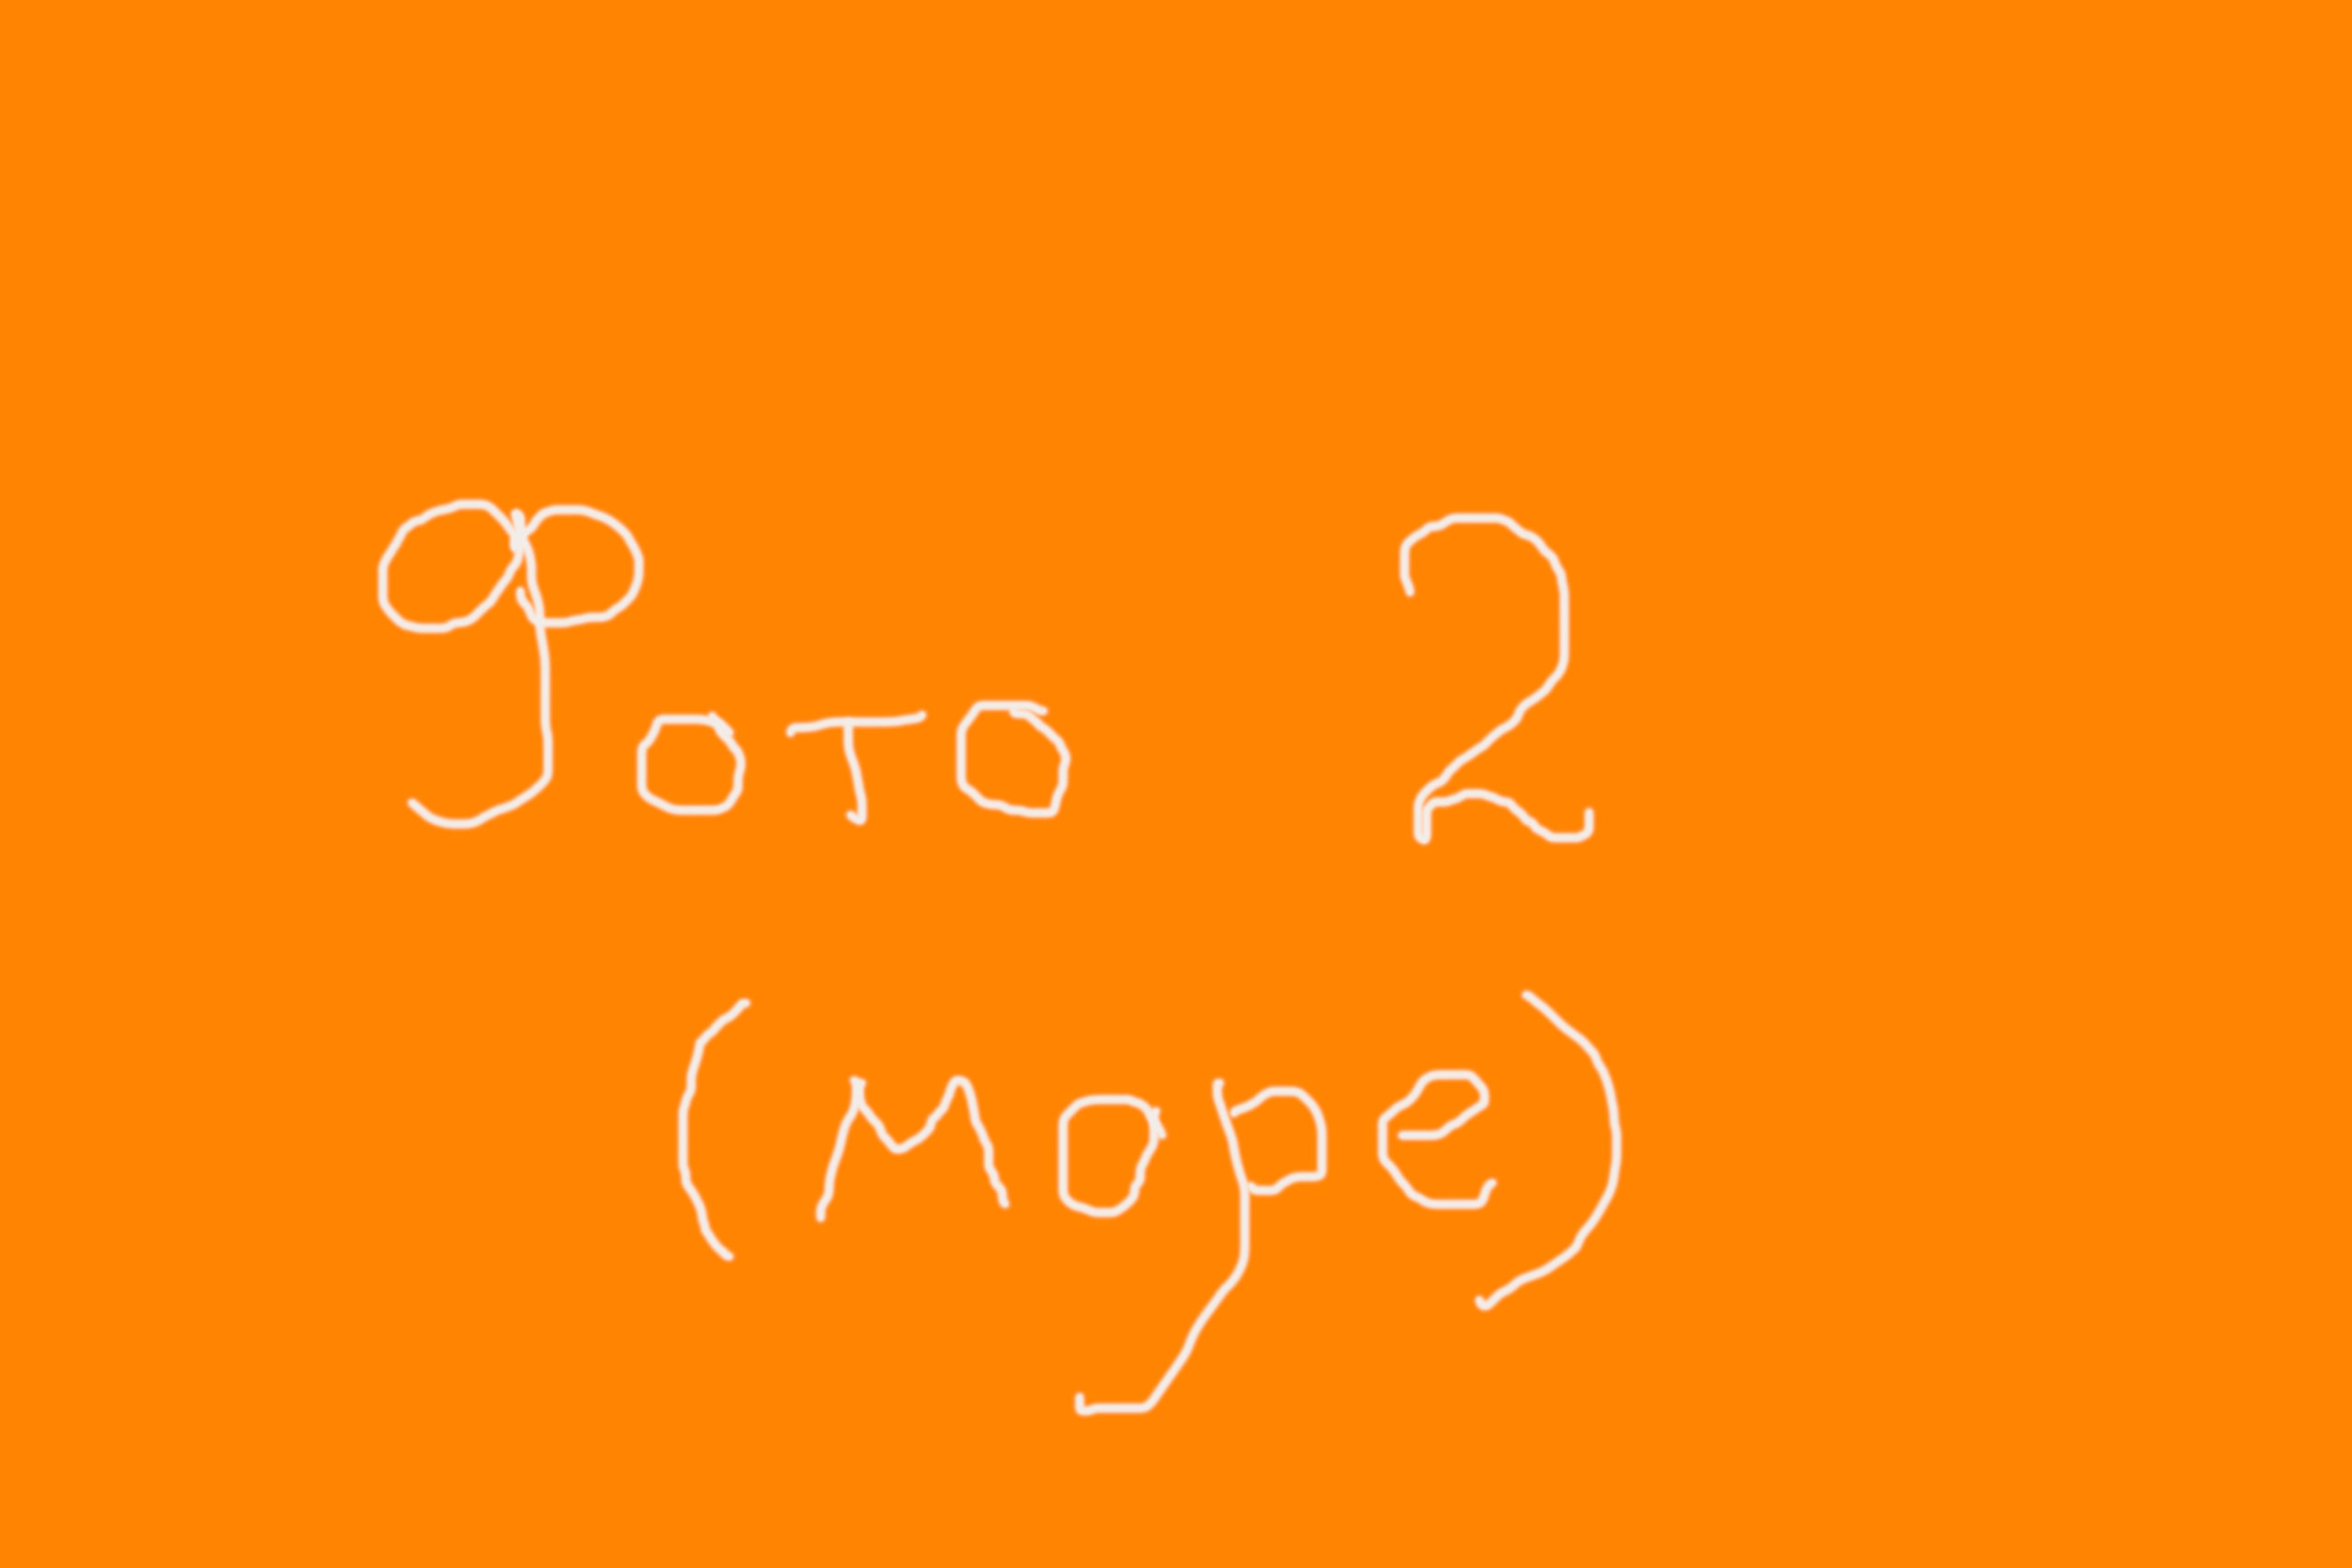 Фото 2
(море)